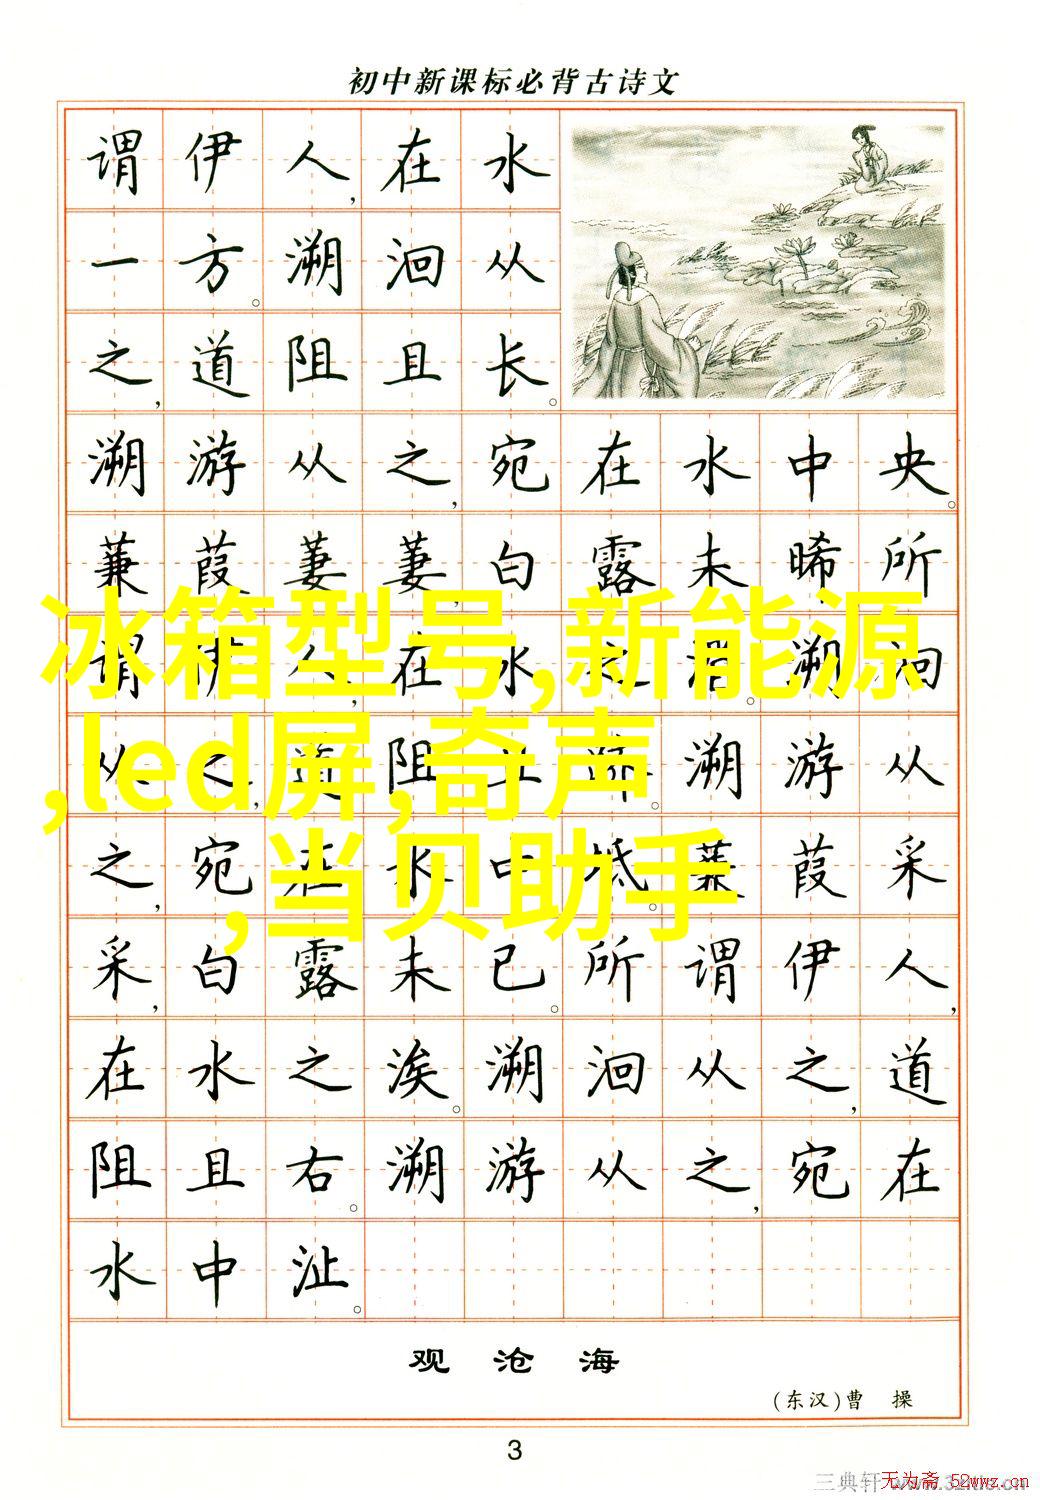 初中新课标必背古诗文
谓伊人,在水
一方。溯洄从
之,道阻且长。
溯游从之,宛在水中央。
蒹葭萋萋,白露未晞所
谓伊人,在水之湄。溯洄
从之,道阻且跻。溯游从
之,宛在水中坻。蒹葭采
采,白露未已。所谓伊人,
在水之涘。溯洄从之,道
阻且右。溯游从之,宛在
水中沚。
冰箱型号,新能源
,led屏,奇声
,当贝助手
观沧海
(东汉)曹 操
3
三典轩
无为斋 52wwz.cn